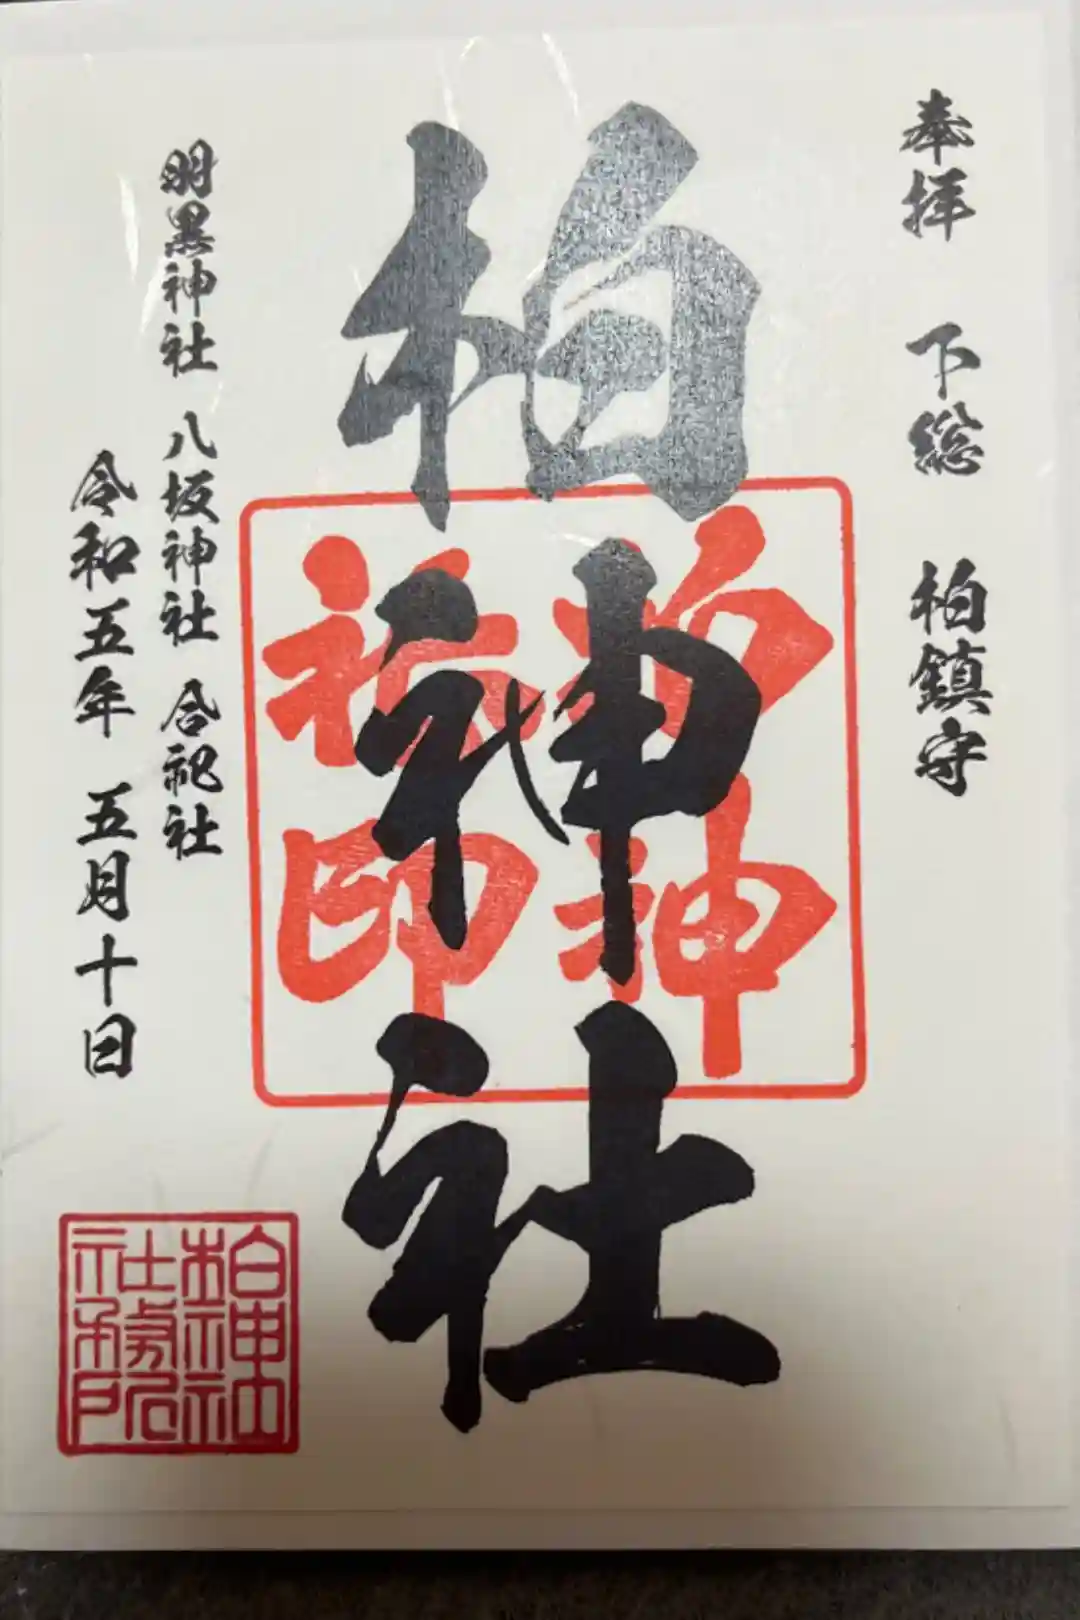 奉拝 下総 柏鎮守
柏神社
柏神
社印
羽黒神社 八坂神社 合祀社
令和五年 五月十日
柏神社
社務所